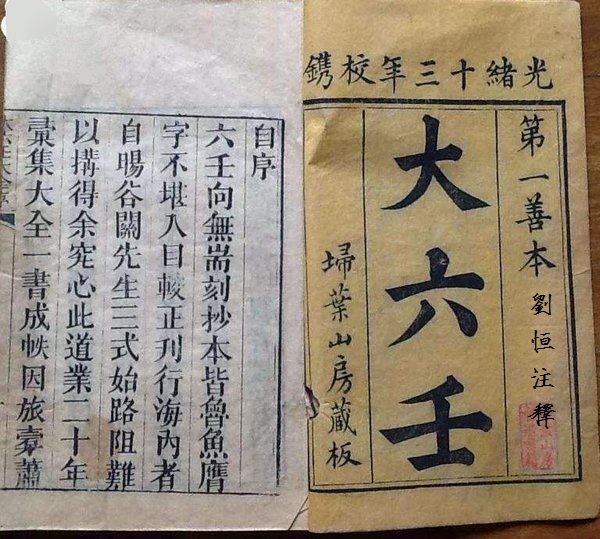 光緒十三年校鐫
第一善本
劉恒注釋
大六壬
埽葉山房藏板
自序
六壬向無耑刻抄本皆魯魚贗
字不堪入目較正刊行海內者
自暘谷關先生三式始路阻難
以搆得余究心此道業二十年
彙集大全一書成帙因旅橐蕭